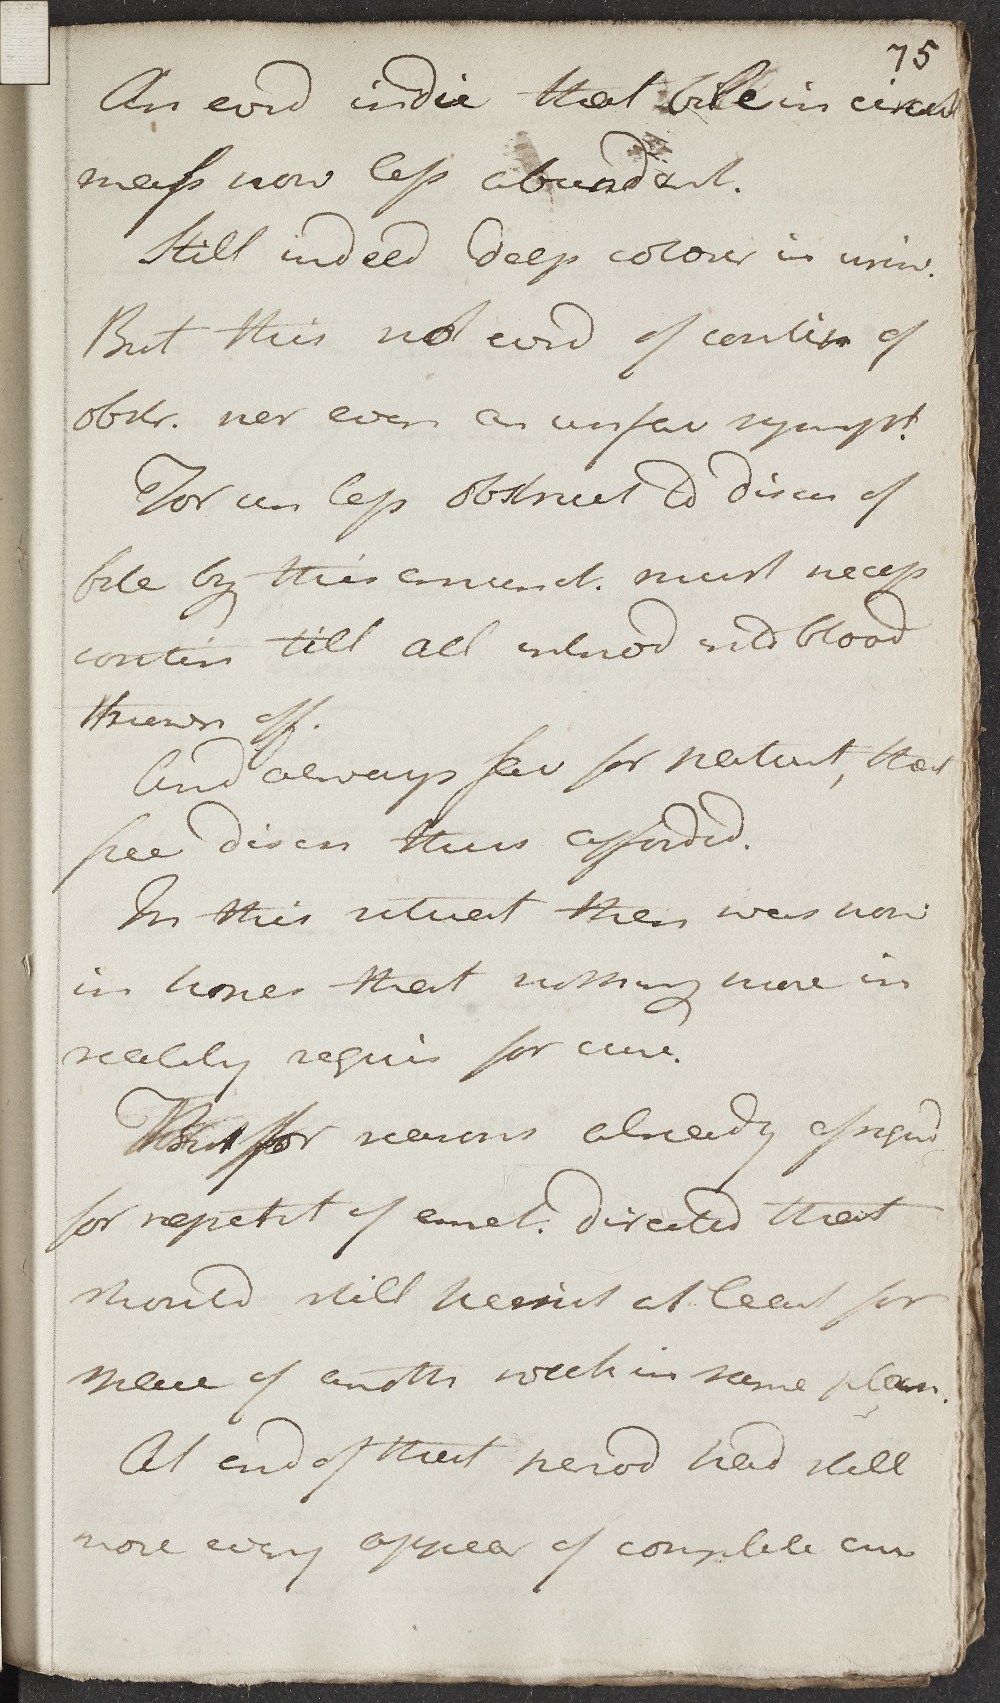 75
An evid indic that bile in circul
mass now less abundant.
Still indeed deep colour in urin.
But this not evid of contin of
obstr. nor even an unfav sympt
For un less obstruct to disch of
bile by this emunct. must necess
contin till all introd into blood
thrown off.
And always fav for patient, that
free disch thus afforded.
In this situat then was now
in hopes that nothing more in
reality requis for cure.
But for reasons already assigned
for repetit of emet. directed that
should still persist at least for
space of anoth week in same plan.
At end of that period had still
more every appear of complete cure